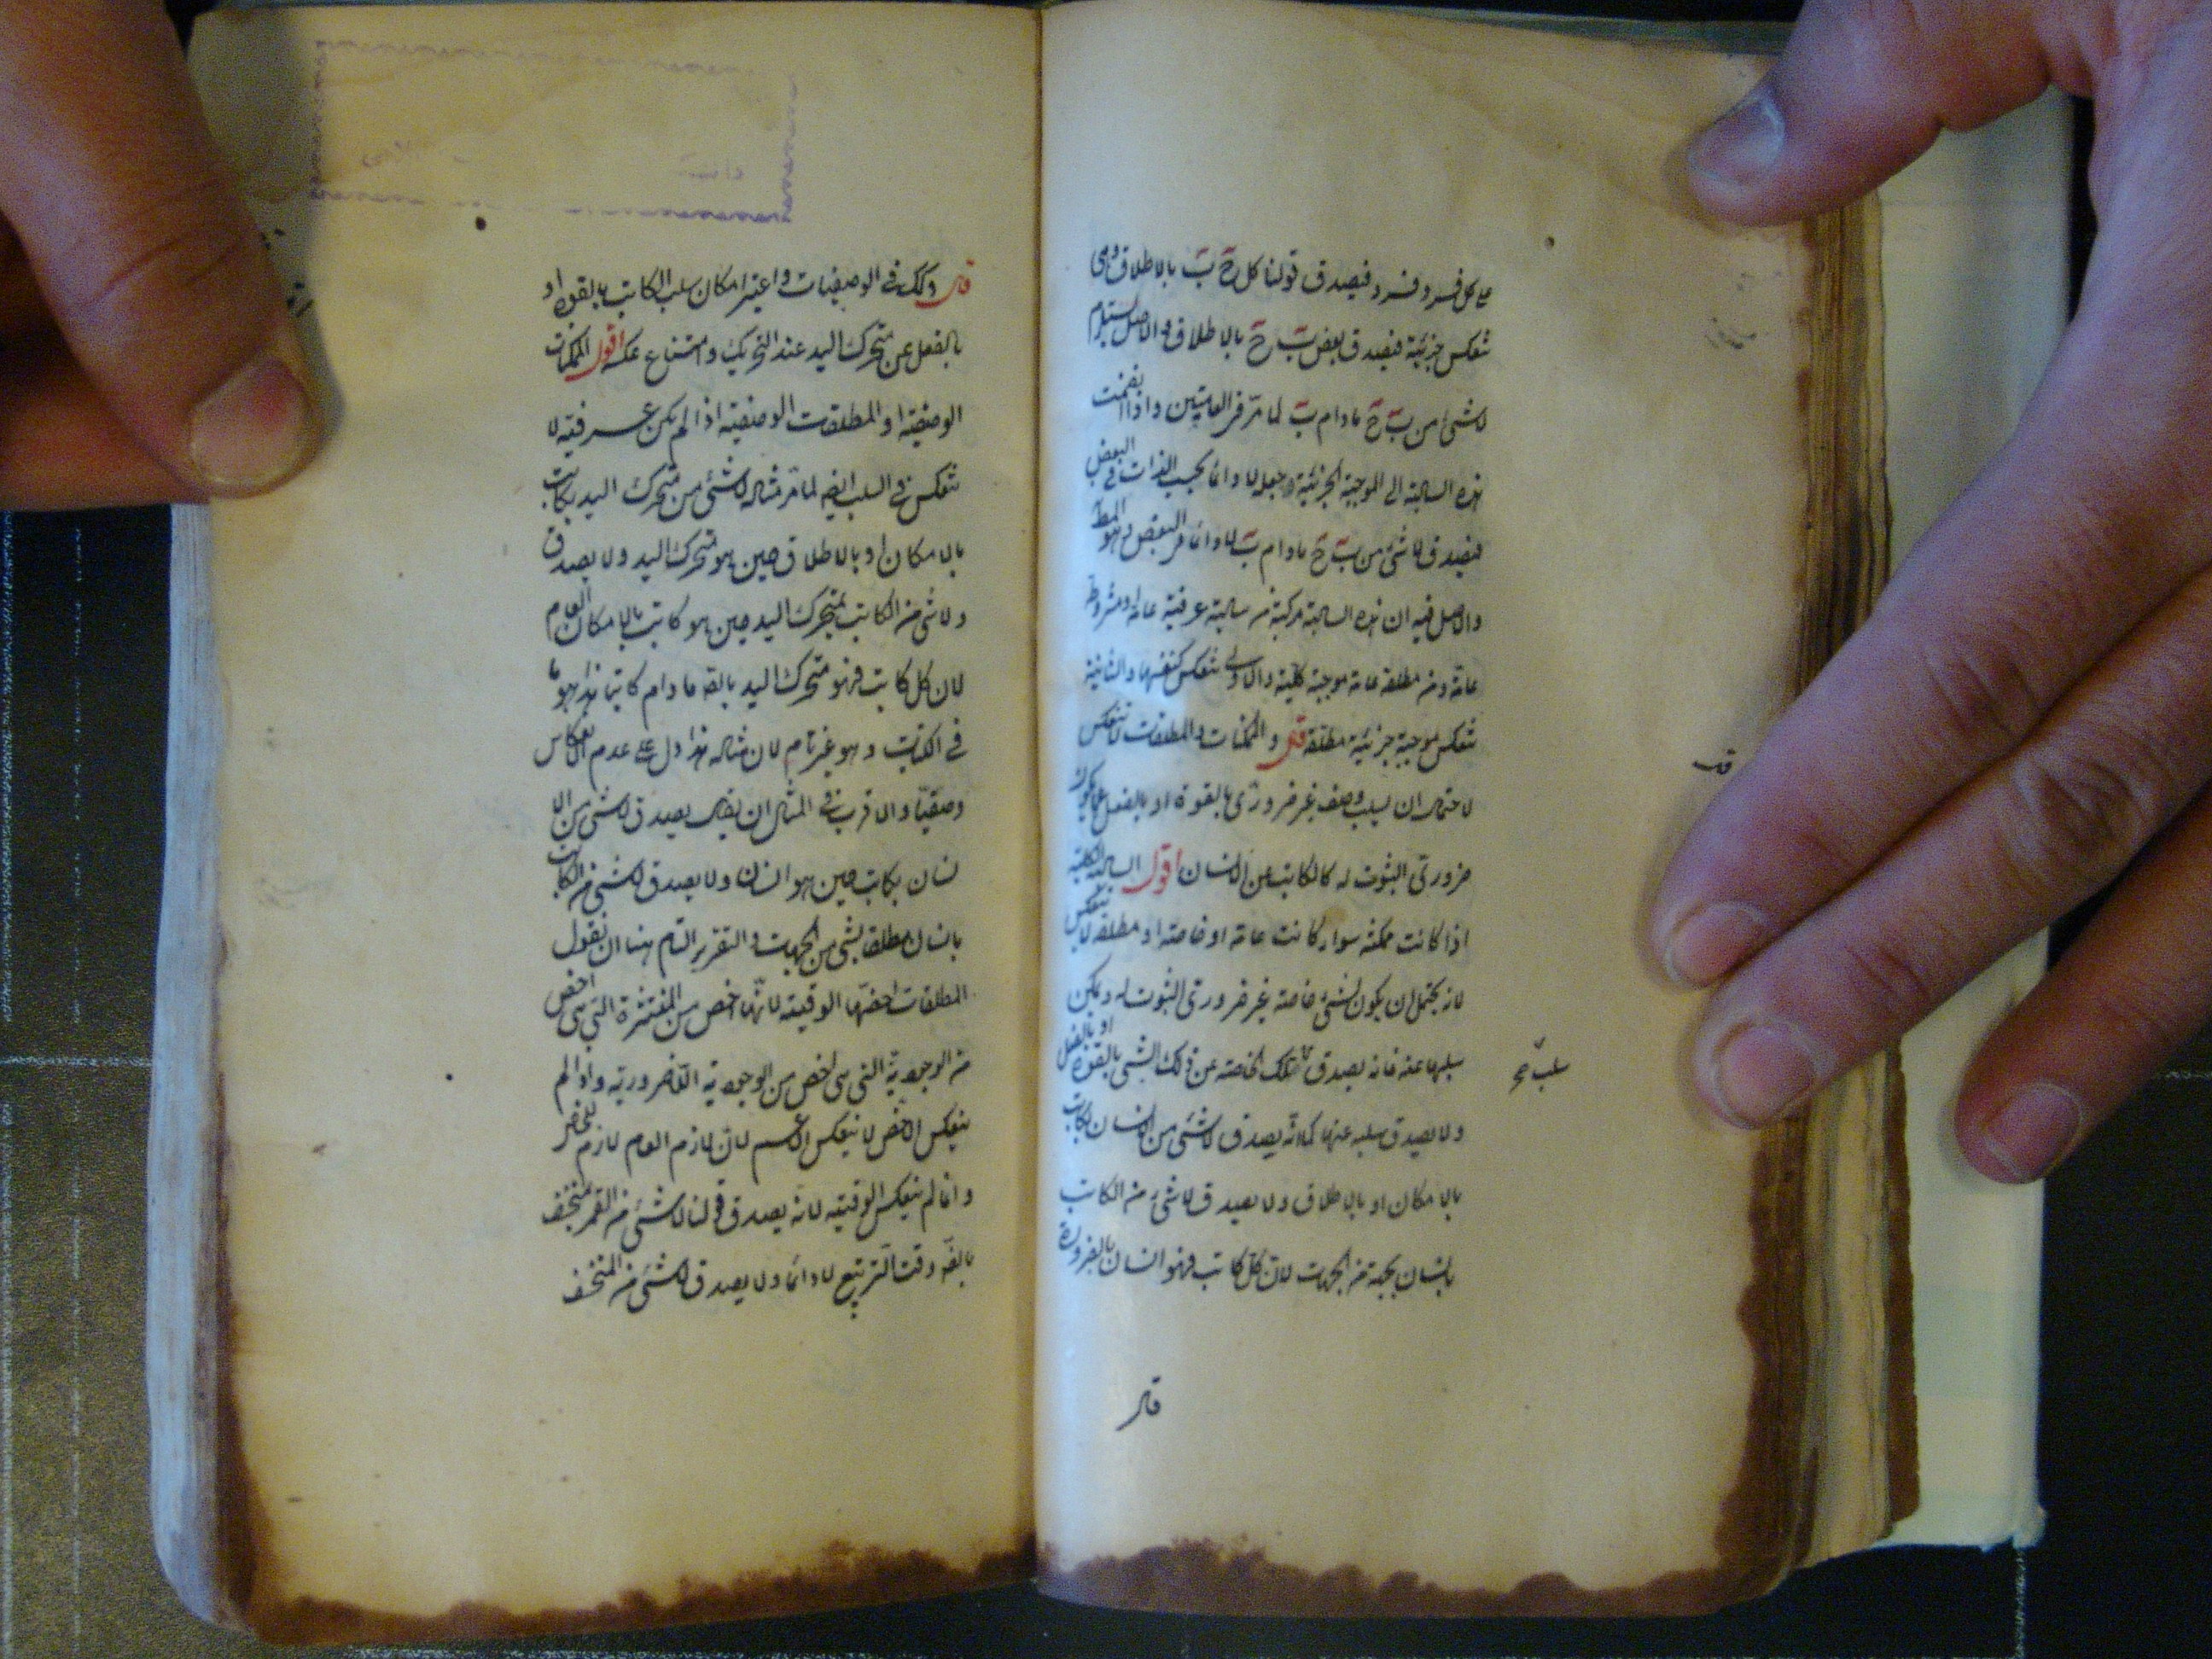 على كل فرد فرد فيصدق قولنا كل ج ب بالاطلاق وهى
تنعكس جزئية فيصدق بعض ب ج بالاطلاق والاصل يستلزم
لاشئ من ب ج مادام ب لما مر فى العامتين واذا انضمت
هذه السالبة الى الموجبة الجزئية وجعل لا دائما بحسب الذات فى البعض
فيصدق لاشئ من ب ج مادام ب لا دائما فى البعض وهو المط
والاصل فيه ان هذه السالبة مركبة من سالبة عرفية عامة او مشروطة
عامة ومن مطلقة عامة موجبة كلية والاولى تنعكس كنفسها والثانية
تنعكس موجبة جزئية مطلقة قال والممكنات والمطلقات لا تنعكس
لاحتمال ان يسلب وصف غير ضرورى بالقوة او بالفعل عما يكون
ضرورى الثبوت له كالكاتب عن الانسان اقول السالبة الكلية
اذا كانت ممكنة سواء كانت عامة او خاصة او مطلقة لا تنعكس
لانه يحتمل ان يكون لشئ خاصة غير ضرورى الثبوت له ويمكن
سلبها عنه فانه يصدق تلك الخاصة عن ذلك الشئ بالقوة او بالفعل
سلب
ولا يصدق سلبه عنها كما انه يصدق لاشئ من الانسان بكاتب
بالامكان او بالاطلاق ولا يصدق لاشئ من الكاتب
بانسان بجهة من الجهات لان كل كاتب فهو انسان بالضرورة
قال
قال وكذلك فى الوصفيات واعتبر امكان سلب الكاتب بالقوة او
بالفعل عن متحرك اليد عند التحريك وامتناع عكسه اقول الممكنات
الوصفية او المطلقات الوصفية اذا لم يكن عرفية لا
تنعكس فى السلب ايضا لما مر مثاله لاشئ من متحرك اليد بكاتب
بالامكان او بالاطلاق حين هو متحرك اليد ولا يصدق
ولاشئ من الكاتب بمتحرك اليد حين هو كاتب بالامكان العام
لان كل كاتب فهو متحرك اليد بالضه مادام كاتبا هذا هو ما
فى الكتاب وهو غير تام لان مثاله هذا دل على عدم الانعكاس
وصفيا والاقرب فى المثال ان يقال يصدق لاشئ من الا
نسان بكاتب حين هو انسان ولا يصدق لاشئ من الكاتب
بانسان مطلقا بشئ من الجهات والتقرير التام هنا ان نقول
المطلقات اخصها الوقتية لانها اخص من المنتشرة التى هى اخص
من الوجودية التى هى اخص من الوجودية اللاضرورية واذا لم
ينعكس الاخص لا ينعكس الاعم لان لازم العام لازم للخاص
وانما لم ينعكس الوقتية لانه يصدق قولنا لاشئ من القمر بمنخسف
بالضه وقت التربيع لا دائما ولا يصدق لاشئ من المنخسف